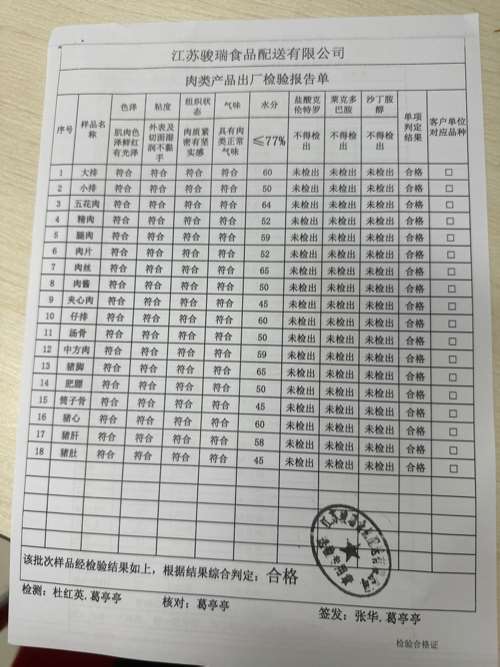 江苏骏瑞食品配送有限公司
肉类产品出厂检验报告单
序号 样品名称 色泽 粘度 组织状态 气味 水分 盐酸克伦特罗 莱克多巴胺 沙丁胺醇 单项判定结果 客户单位对应品种
肌肉色泽鲜红有光泽 外表及切面湿润不黏手 肉质紧密有坚实感 具有肉类正常气味 ≤77% 不得检出 不得检出 不得检出
1 大排 符合 符合 符合 符合 60 未检出 未检出 未检出 合格 □
2 小排 符合 符合 符合 符合 50 未检出 未检出 未检出 合格 □
3 五花肉 符合 符合 符合 符合 64 未检出 未检出 未检出 合格 □
4 精肉 符合 符合 符合 符合 52 未检出 未检出 未检出 合格 □
5 腿肉 符合 符合 符合 符合 59 未检出 未检出 未检出 合格 □
6 肉片 符合 符合 符合 符合 52 未检出 未检出 未检出 合格 □
7 肉丝 符合 符合 符合 符合 65 未检出 未检出 未检出 合格 □
8 肉酱 符合 符合 符合 符合 50 未检出 未检出 未检出 合格 □
9 夹心肉 符合 符合 符合 符合 45 未检出 未检出 未检出 合格 □
10 仔排 符合 符合 符合 符合 60 未检出 未检出 未检出 合格 □
11 汤骨 符合 符合 符合 符合 50 未检出 未检出 未检出 合格 □
12 中方肉 符合 符合 符合 符合 59 未检出 未检出 未检出 合格 □
13 猪脚 符合 符合 符合 符合 65 未检出 未检出 未检出 合格 □
14 肥膘 符合 符合 符合 符合 50 未检出 未检出 未检出 合格 □
15 筒子骨 符合 符合 符合 符合 45 未检出 未检出 未检出 合格 □
16 猪心 符合 符合 符合 符合 60 未检出 未检出 未检出 合格 □
17 猪肝 符合 符合 符合 符合 58 未检出 未检出 未检出 合格 □
18 猪肚 符合 符合 符合 符合 45 未检出 未检出 未检出 合格 □
该批次样品经检验结果如上，根据结果综合判定：合格
检测：杜红英.葛亭亭 核对：葛亭亭 签发：张华.葛亭亭
检验合格证